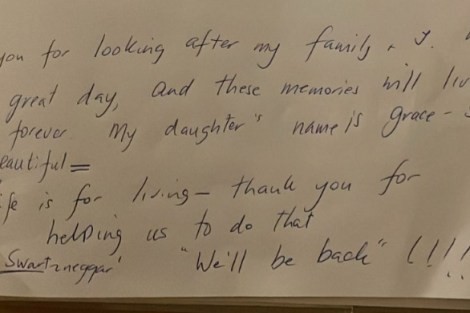 you for looking after my family. J.
great day, and these memories will liv
forever My daughter's name is grace -
eautiful =
fe is for living - thank you for
helping us to do that
Swartzneggar' "We'll be back" (!!!